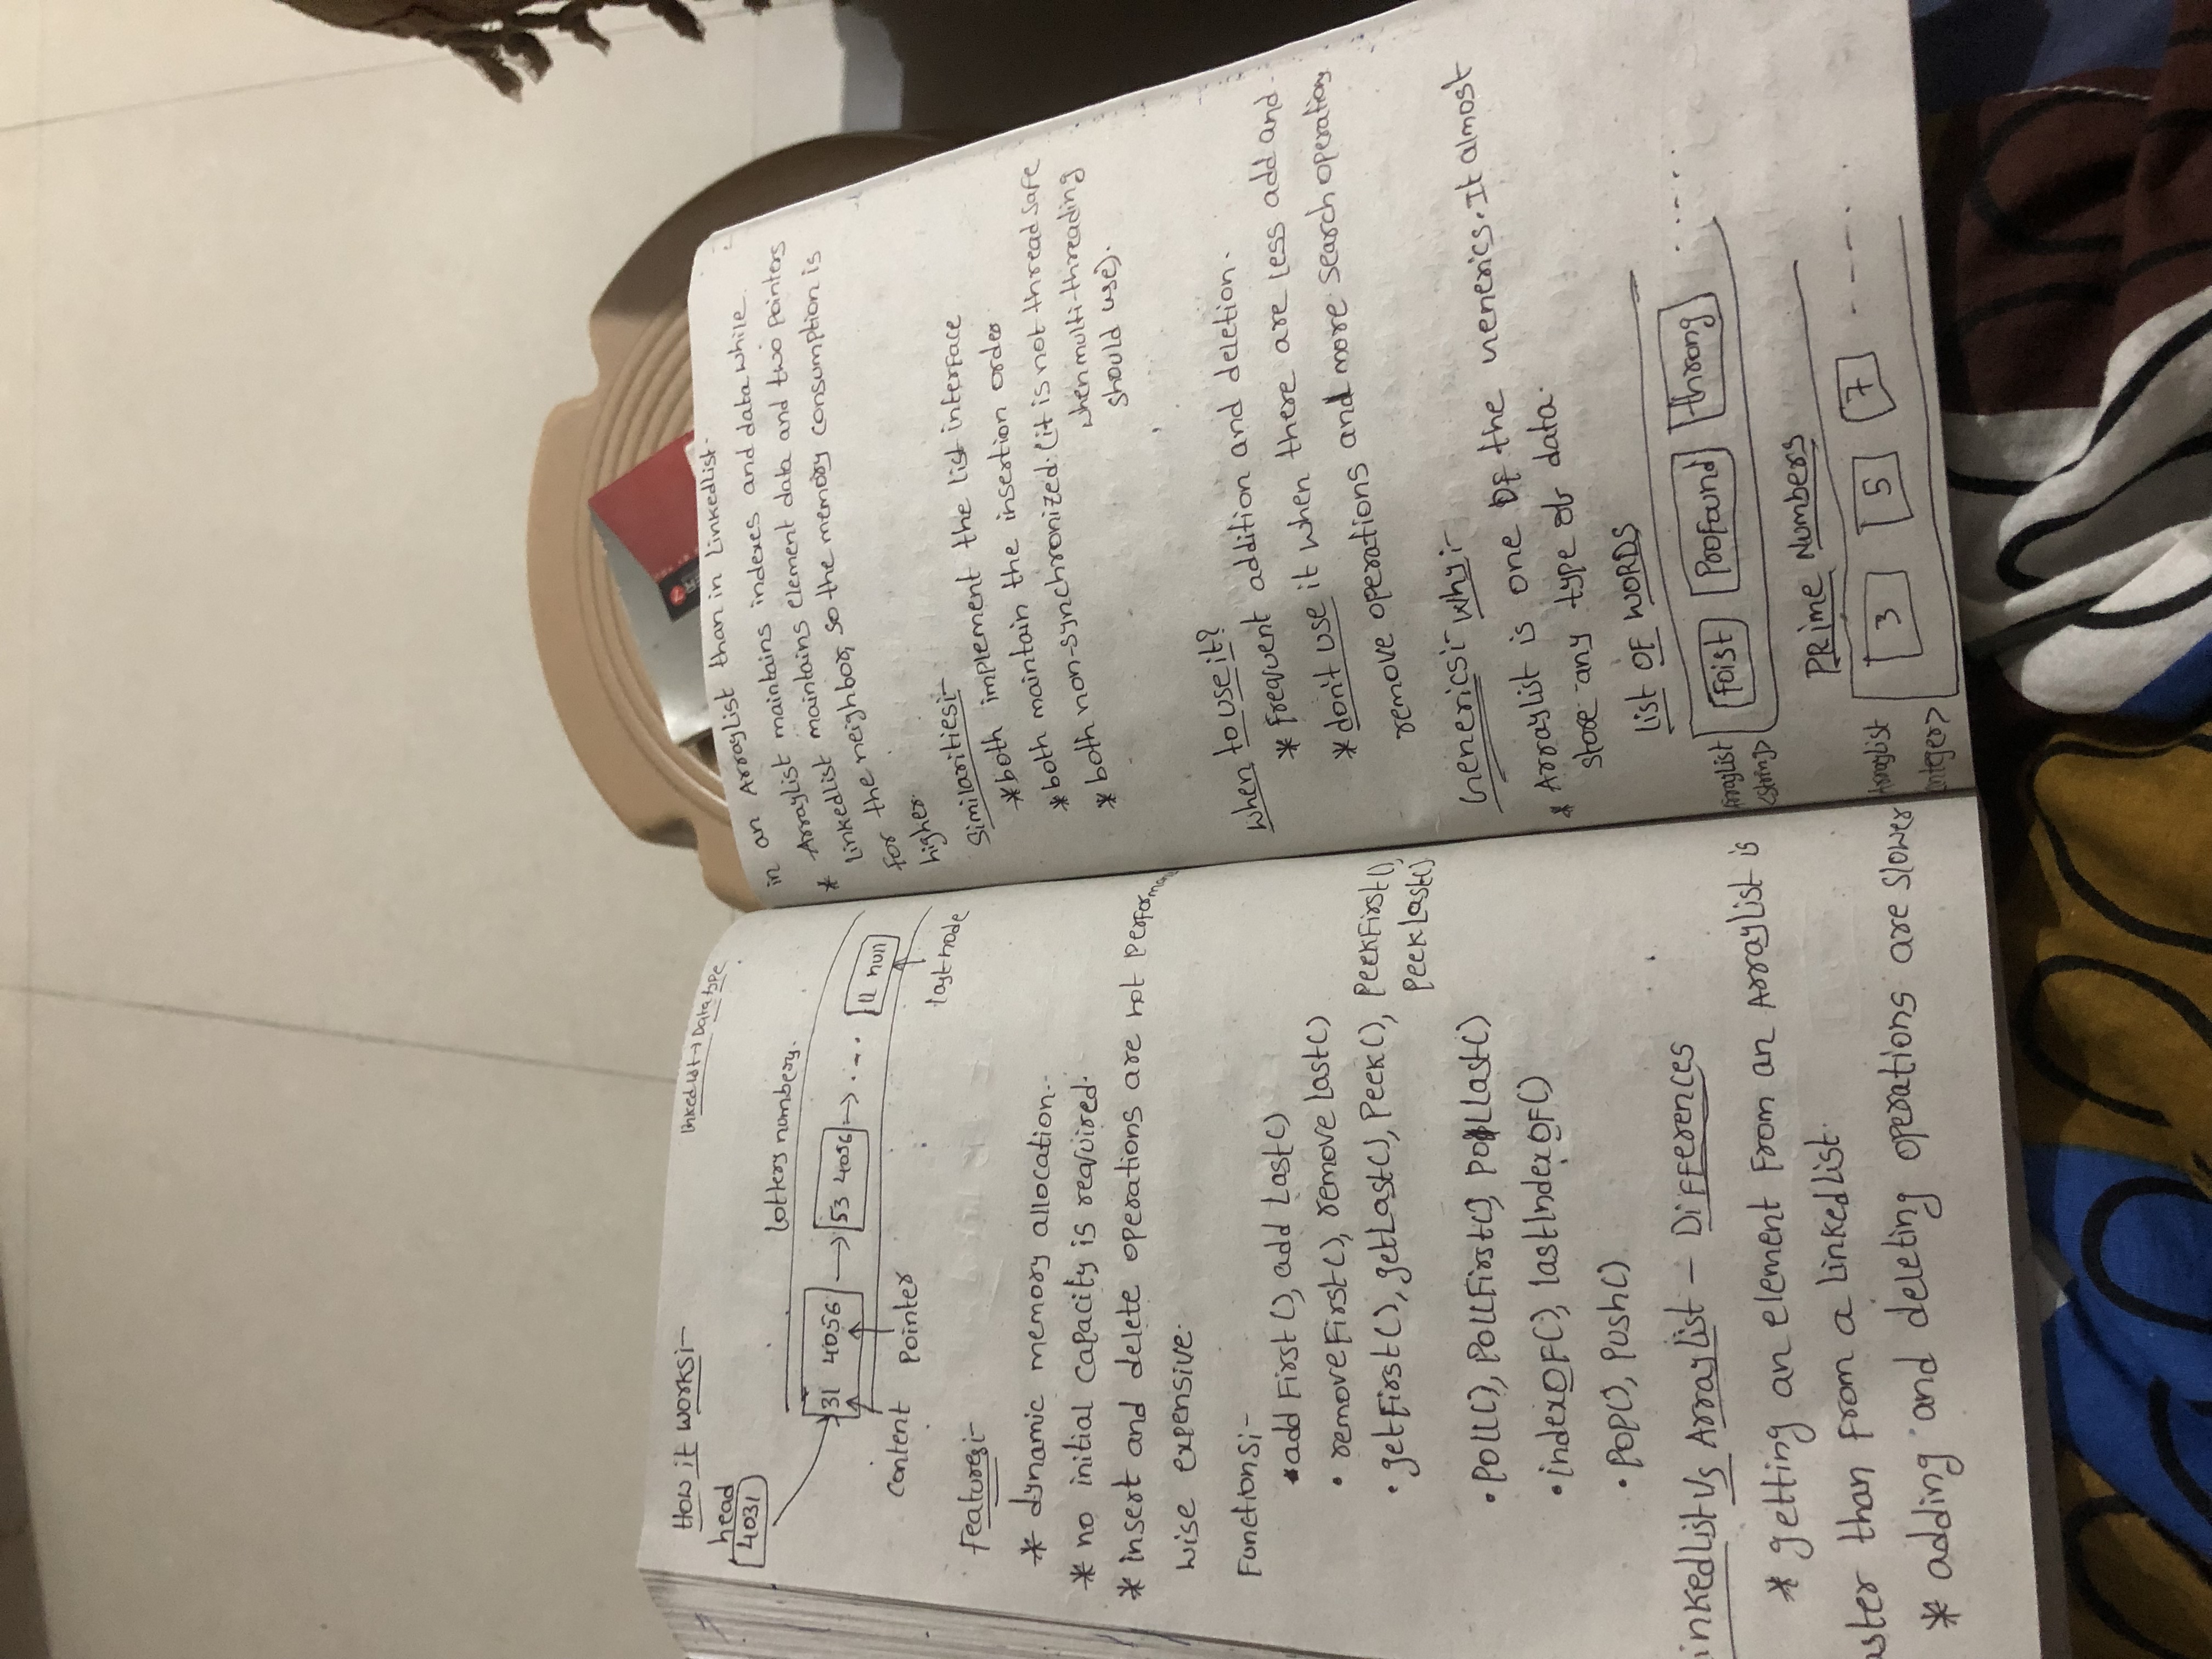 How it works:-
linkedlist → Data type
head
4031
lottery numbers.
31 4056 → 53 4056 → .... 11 null
content pointer
last node
Features:-
* dynamic memory allocation.
* no initial capacity is required.
* insert and delete operations are not Performan
wise expensive.
Functions:-
• addFirst(), addLast()
• removeFirst(), removeLast()
• getFirst(), getLast(), Peek(), PeekFirst(),
PeekLast()
• Poll(), PollFirst(), PollLast()
• indexOF(), lastIndexOF()
• POP(), Push()
inkedlist Vs Arraylist - Differences
* getting an element From an Arraylist is
aster than from a linkedlist.
* adding and deleting operations are slower
in an ArrayList than in LinkedList.
* ArrayList maintains indexes and data while
LinkedList maintains element data and two pointers
for the neighbor, so the memory consumption is
higher.
Similarities:-
* both implement the list interface
* both maintain the insertion order
* both non-synchronized. (it is not thread safe
when multi-threading
should use).
When to use it?
* Frequent addition and deletion.
* don't use it when there are less add and
remove operations and more search operations
Generics:- Why:-
* Arraylist is one OF the Generics. It almost
store any type of data.
List OF WORDS
ArrayList
<string>
Foist Profound throng .....
PRime Numbers
ArrayList
integer>
3 5 7 .....